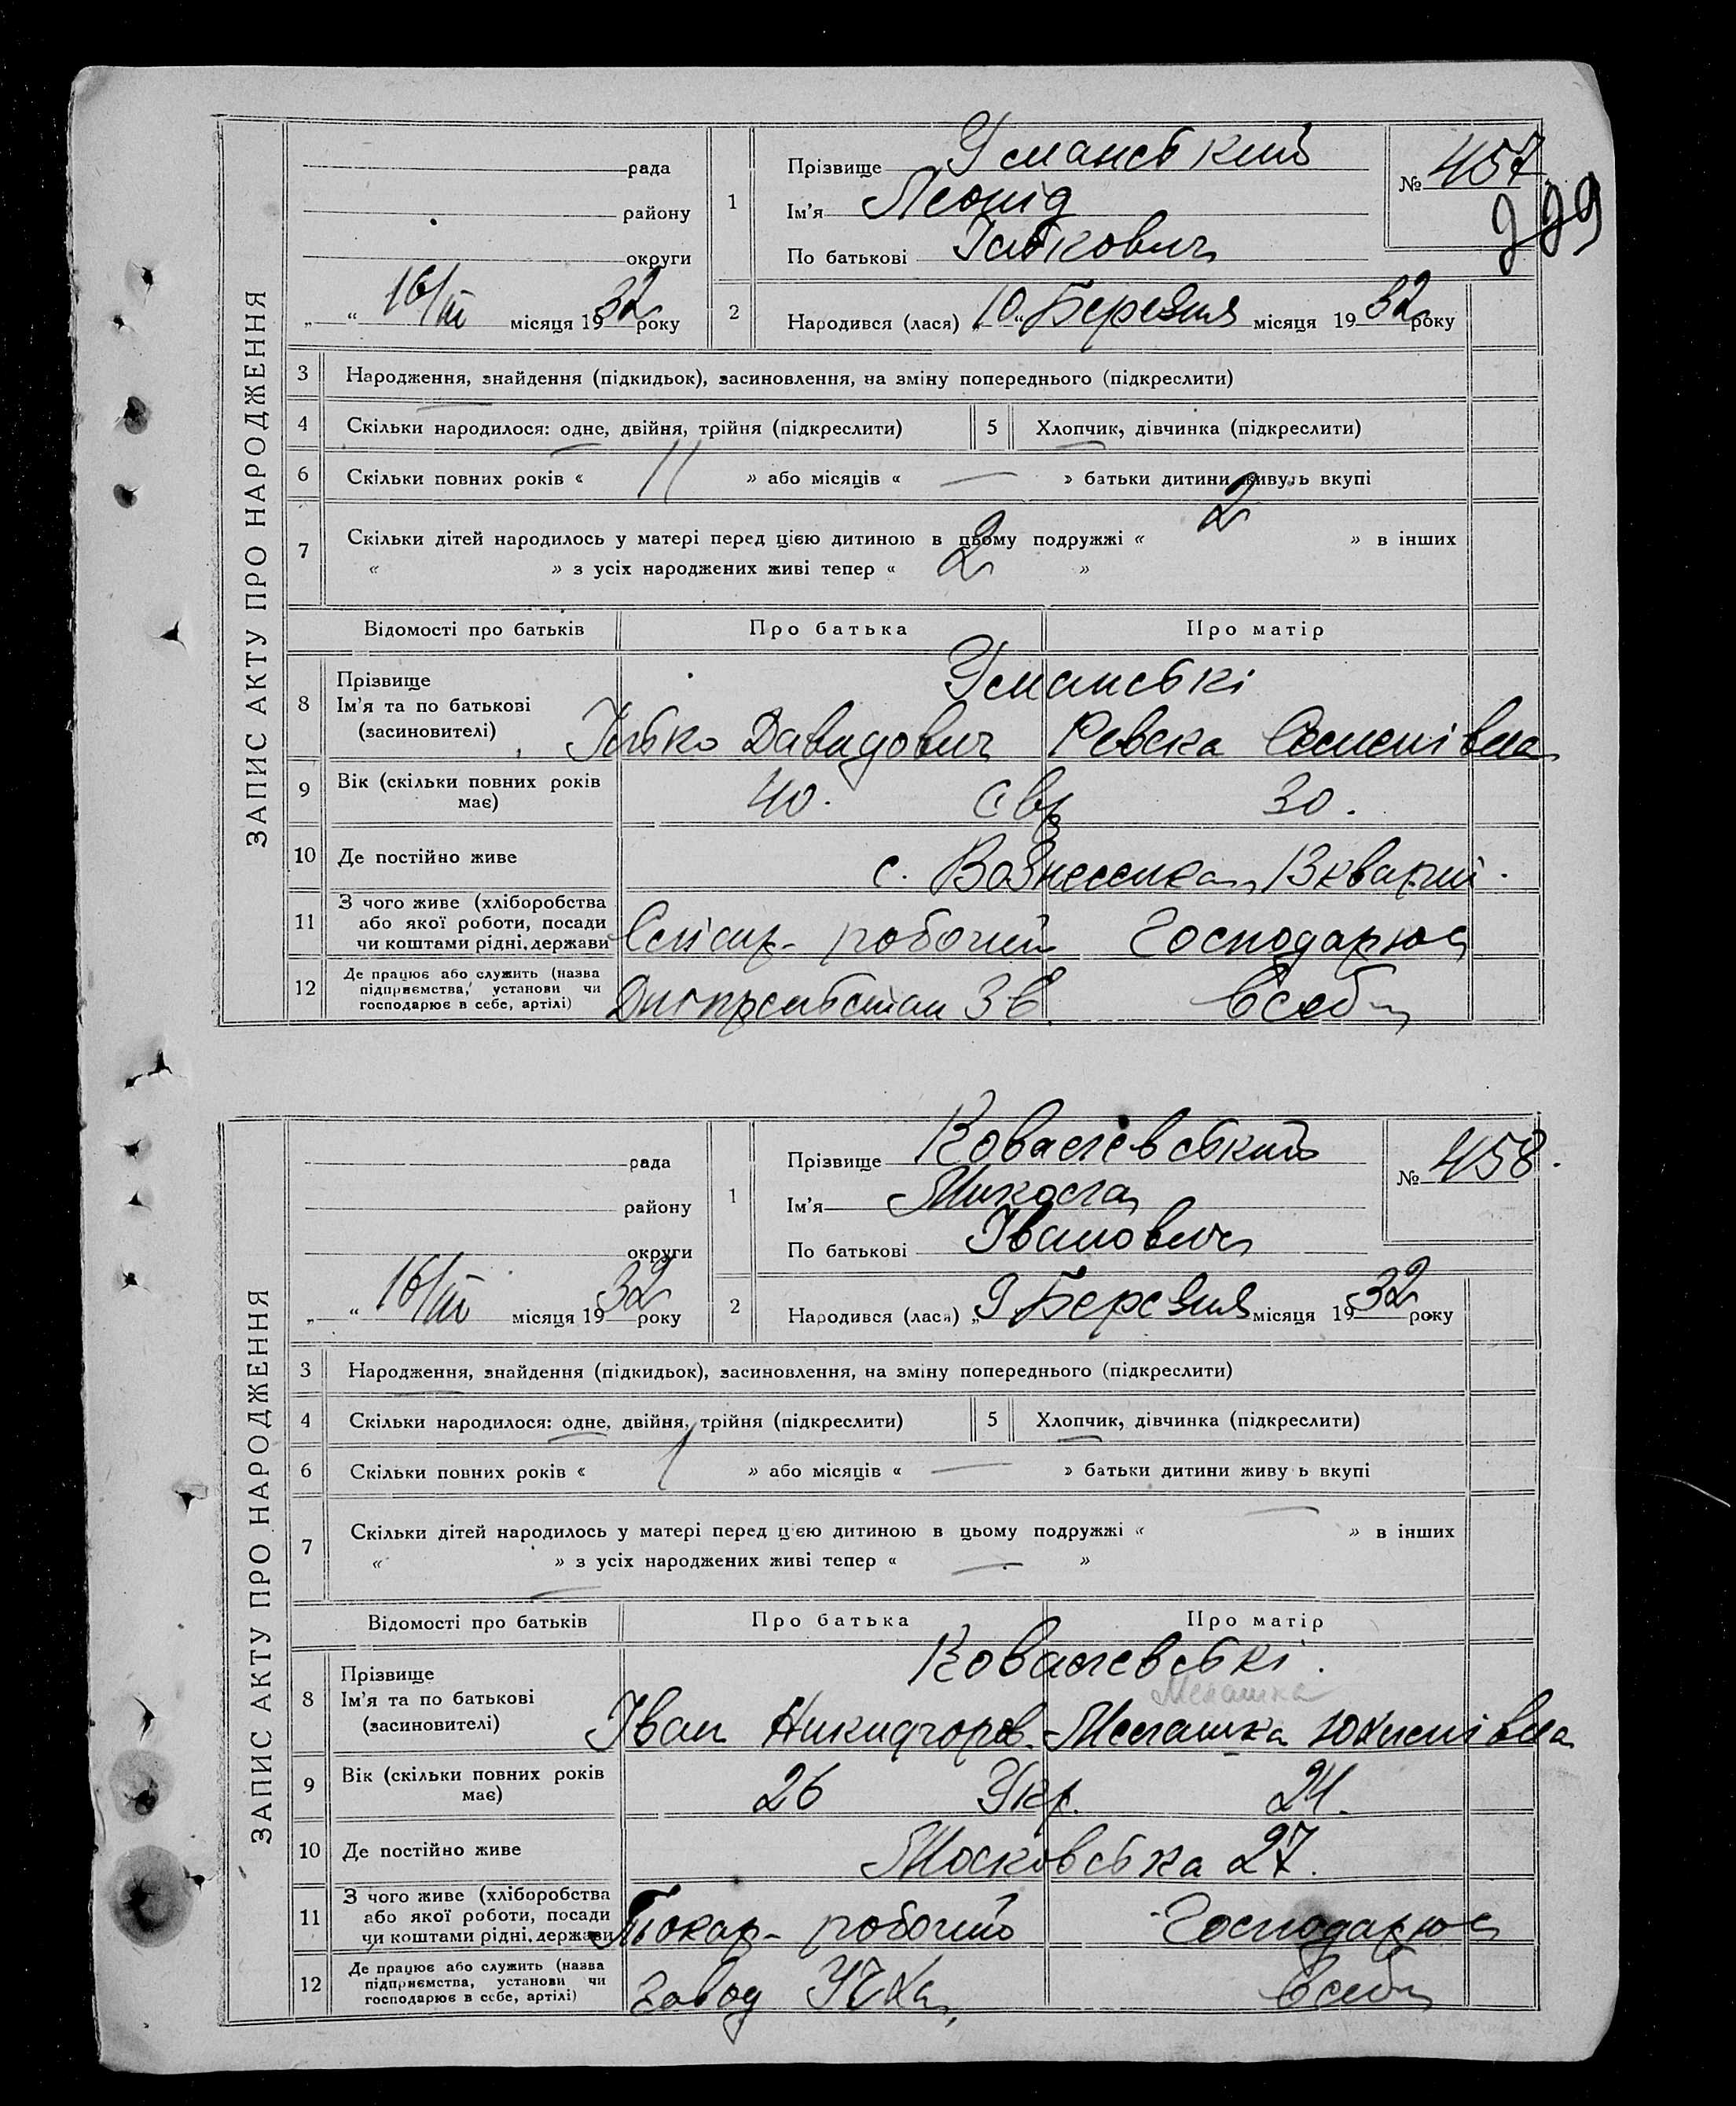 ЗАПИС АКТУ ПРО НАРОДЖЕННЯ
рада
району
округи
„ “ 16/III місяця 1932 року
1
Прізвище Уманський
Ім'я Леонід
По батькові
№ 457
2
Народився (лася) „10“ Березня місяця 1932 року
3 Народження, знайдення (підкидьок), засиновлення, на зміну попереднього (підкреслити)
4 Скільки народилося: одне, двійня, трійня (підкреслити)
5 Хлопчик, дівчинка (підкреслити)
6 Скільки повних років « 11 » або місяців « — » батьки дитини живуть вкупі
7 Скільки дітей народилось у матері перед цією дитиною в цьому подружжі « 2 » в інших
« » з усіх народжених живі тепер « 2 »
Відомості про батьків Про батька Про матір
8 Прізвище
Ім'я та по батькові
(засиновителі)
Уманські
Давидович Ревека Семенівна
9 Вік (скільки повних років
має)
40. Євр 30.
10 Де постійно живе
с. Вознесенка, 13 кварт.
11 З чого живе (хліборобства
або якої роботи, посади
чи коштами рідні, держави
Слісар-робочий Господарює
12 Де працює або служить (назва
підприємства, установи чи
господарює в себе, артілі)
в себе
ЗАПИС АКТУ ПРО НАРОДЖЕННЯ
рада
району
округи
„ “ 16/III місяця 1932 року
1
Прізвище Ковалевський
Ім'я Микола
По батькові Іванович
№ 458.
2
Народився (лася) „9 Березня місяця 1932 року
3 Народження, знайдення (підкидьок), засиновлення, на зміну попереднього (підкреслити)
4 Скільки народилося: одне, двійня, трійня (підкреслити)
5 Хлопчик, дівчинка (підкреслити)
6 Скільки повних років « 1 » або місяців « — » батьки дитини живу ь вкупі
7 Скільки дітей народилось у матері перед цією дитиною в цьому подружжі « — » в інших
« — » з усіх народжених живі тепер « — »
Відомості про батьків Про батька Про матір
8 Прізвище
Ім'я та по батькові
(засиновителі)
Ковалевські.
Мелашка
Іван Никифоров. Мелашка
9 Вік (скільки повних років
має)
26 Укр. 24.
10 Де постійно живе
Московська 27.
11 З чого живе (хліборобства
або якої роботи, посади
чи коштами рідні, держави
Токар-робочий Господарює
12 Де працює або служить (назва
підприємства, установи чи
господарює в себе, артілі)
завод в себе